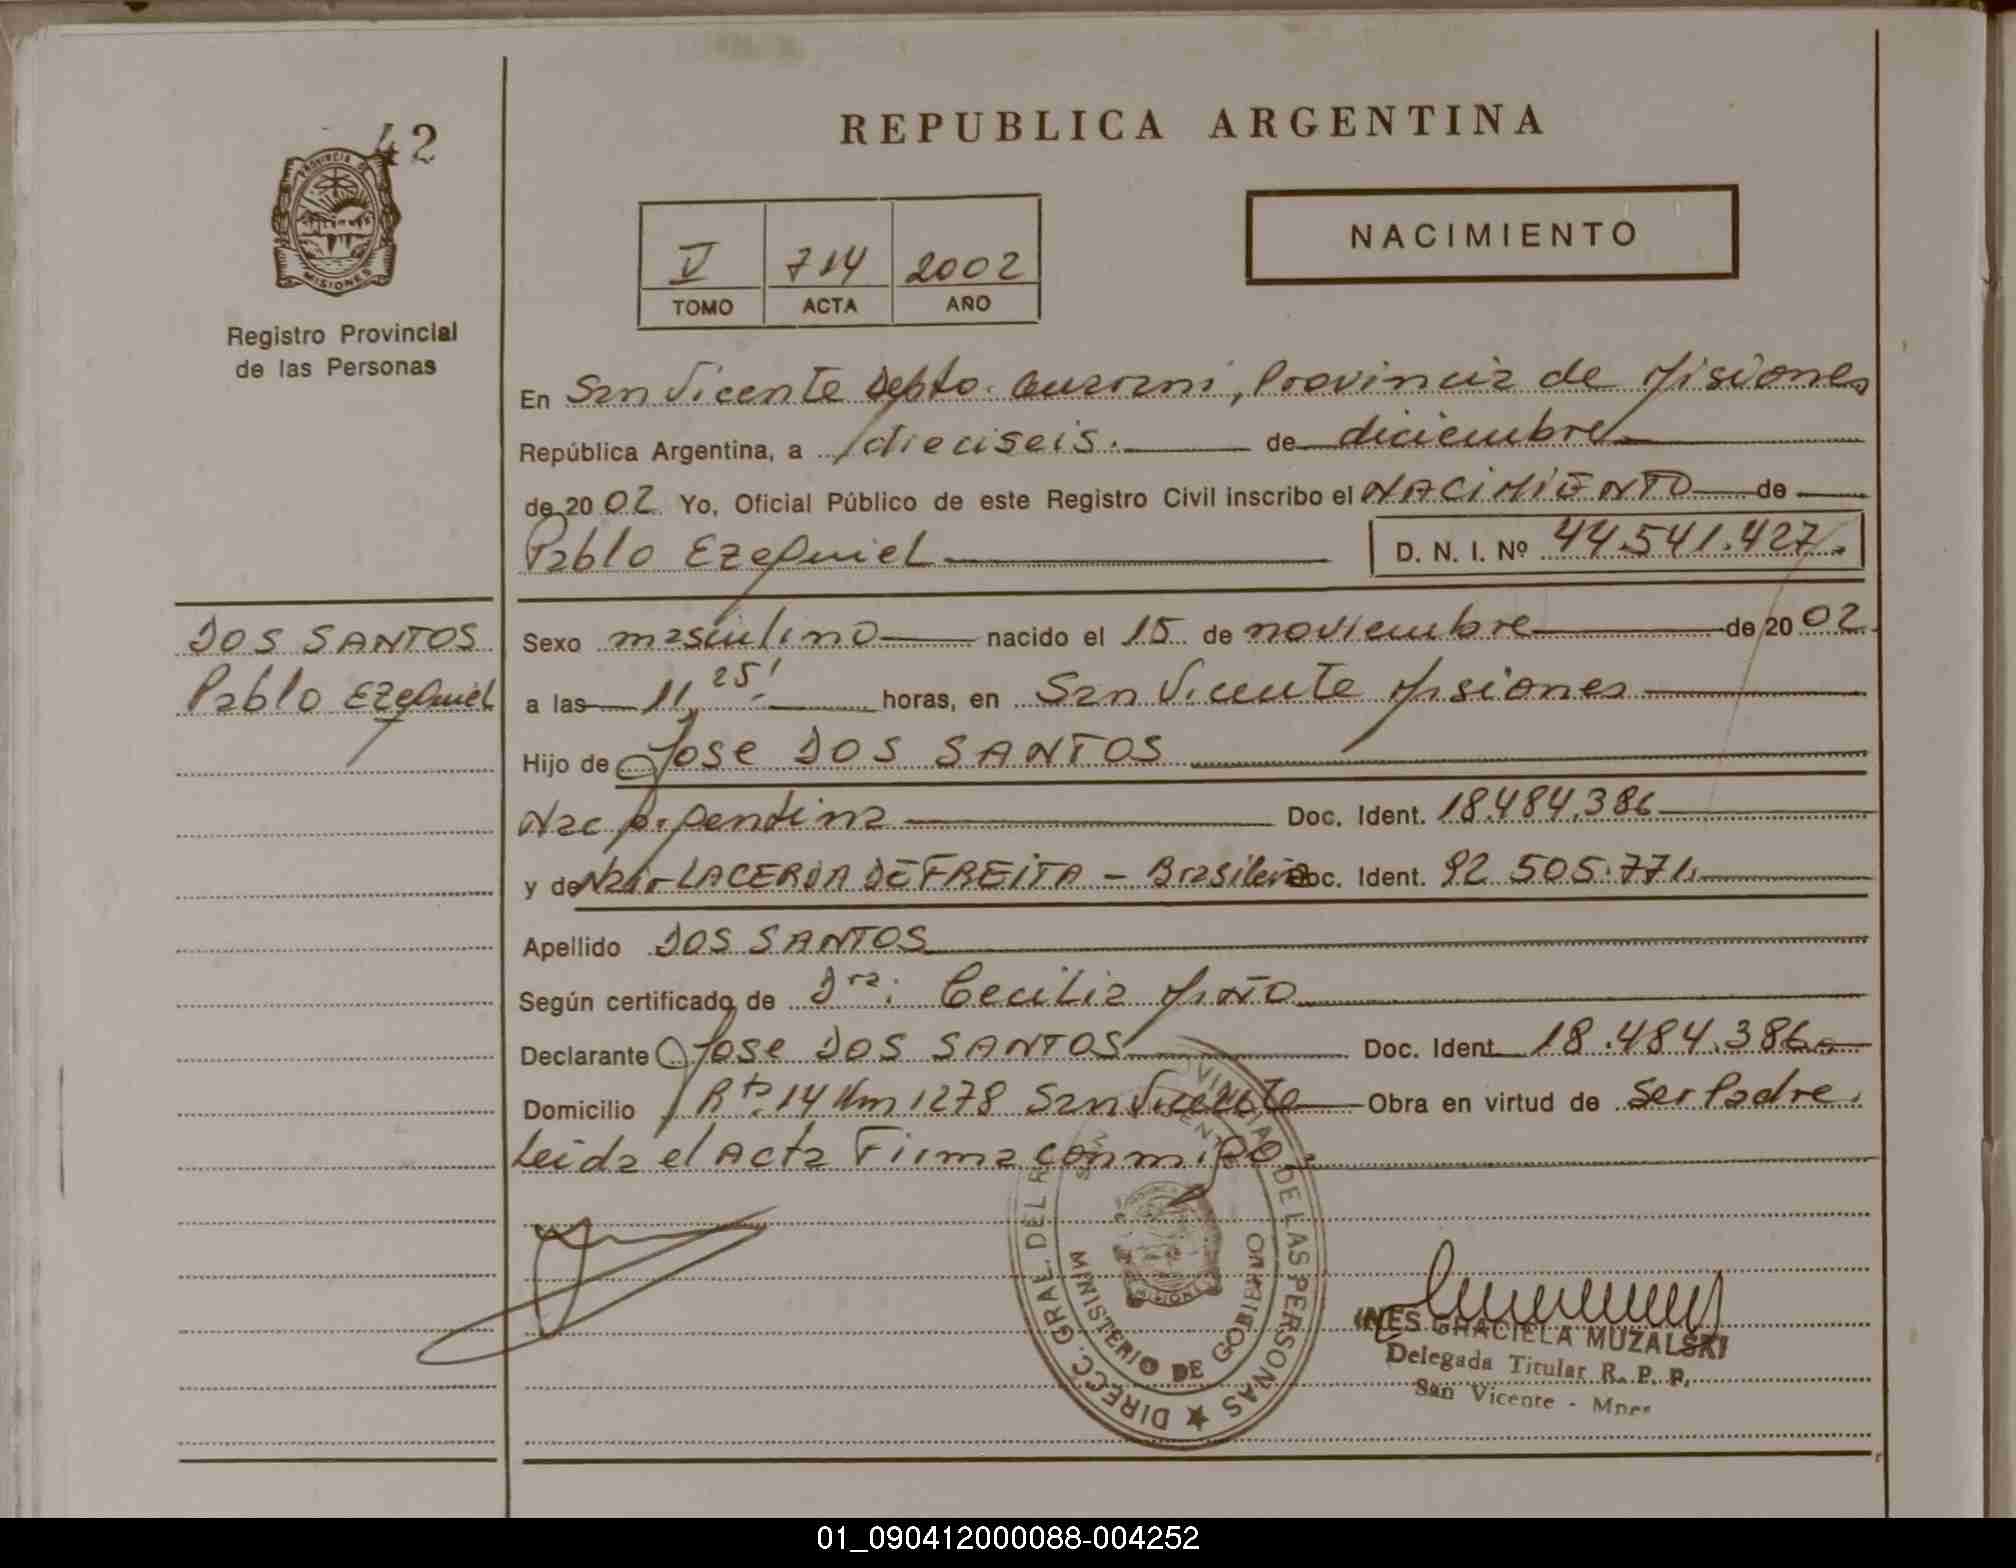 42
PROVINCIA DE
MISIONES
Registro Provincial
de las Personas
REPUBLICA ARGENTINA
V 714 2002
TOMO ACTA AÑO
NACIMIENTO
En San Vicente Depto. Guarani, Provincia de Misiones
República Argentina, a dieciseis. de diciembre
de 20 02 Yo, Oficial Público de este Registro Civil inscribo el NACIMIENTO de
Pablo Ezequiel D. N. I. Nº 44.541.427.
DOS SANTOS
Pablo Ezequiel
Sexo masculino nacido el 15 de noviembre de 20 02
a las 11,25' horas, en San Vicente Misiones
Hijo de Jose DOS SANTOS
Nac Argentina Doc. Ident. 18.484.386
y de LACERDA DE FREITA - Brasilera Doc. Ident. 92.505.771.
Apellido DOS SANTOS
Según certificado de Dra: Cecilia Miño
Declarante Jose DOS SANTOS Doc. Ident. 18.484.386
Domicilio Rta. 14 Km 1278 San Vicente Obra en virtud de Ser Padre.
Leida el Acta Firma conmigo.
DIRECC. GRAL. DEL R PROVINCIAL DE LAS PERSONAS
MINISTERIO DE GOBIERNO
MISIONES
INES GRACIELA MUZALSKI
Delegada Titular R. P. P.
San Vicente - Mnes
01_090412000088-004252